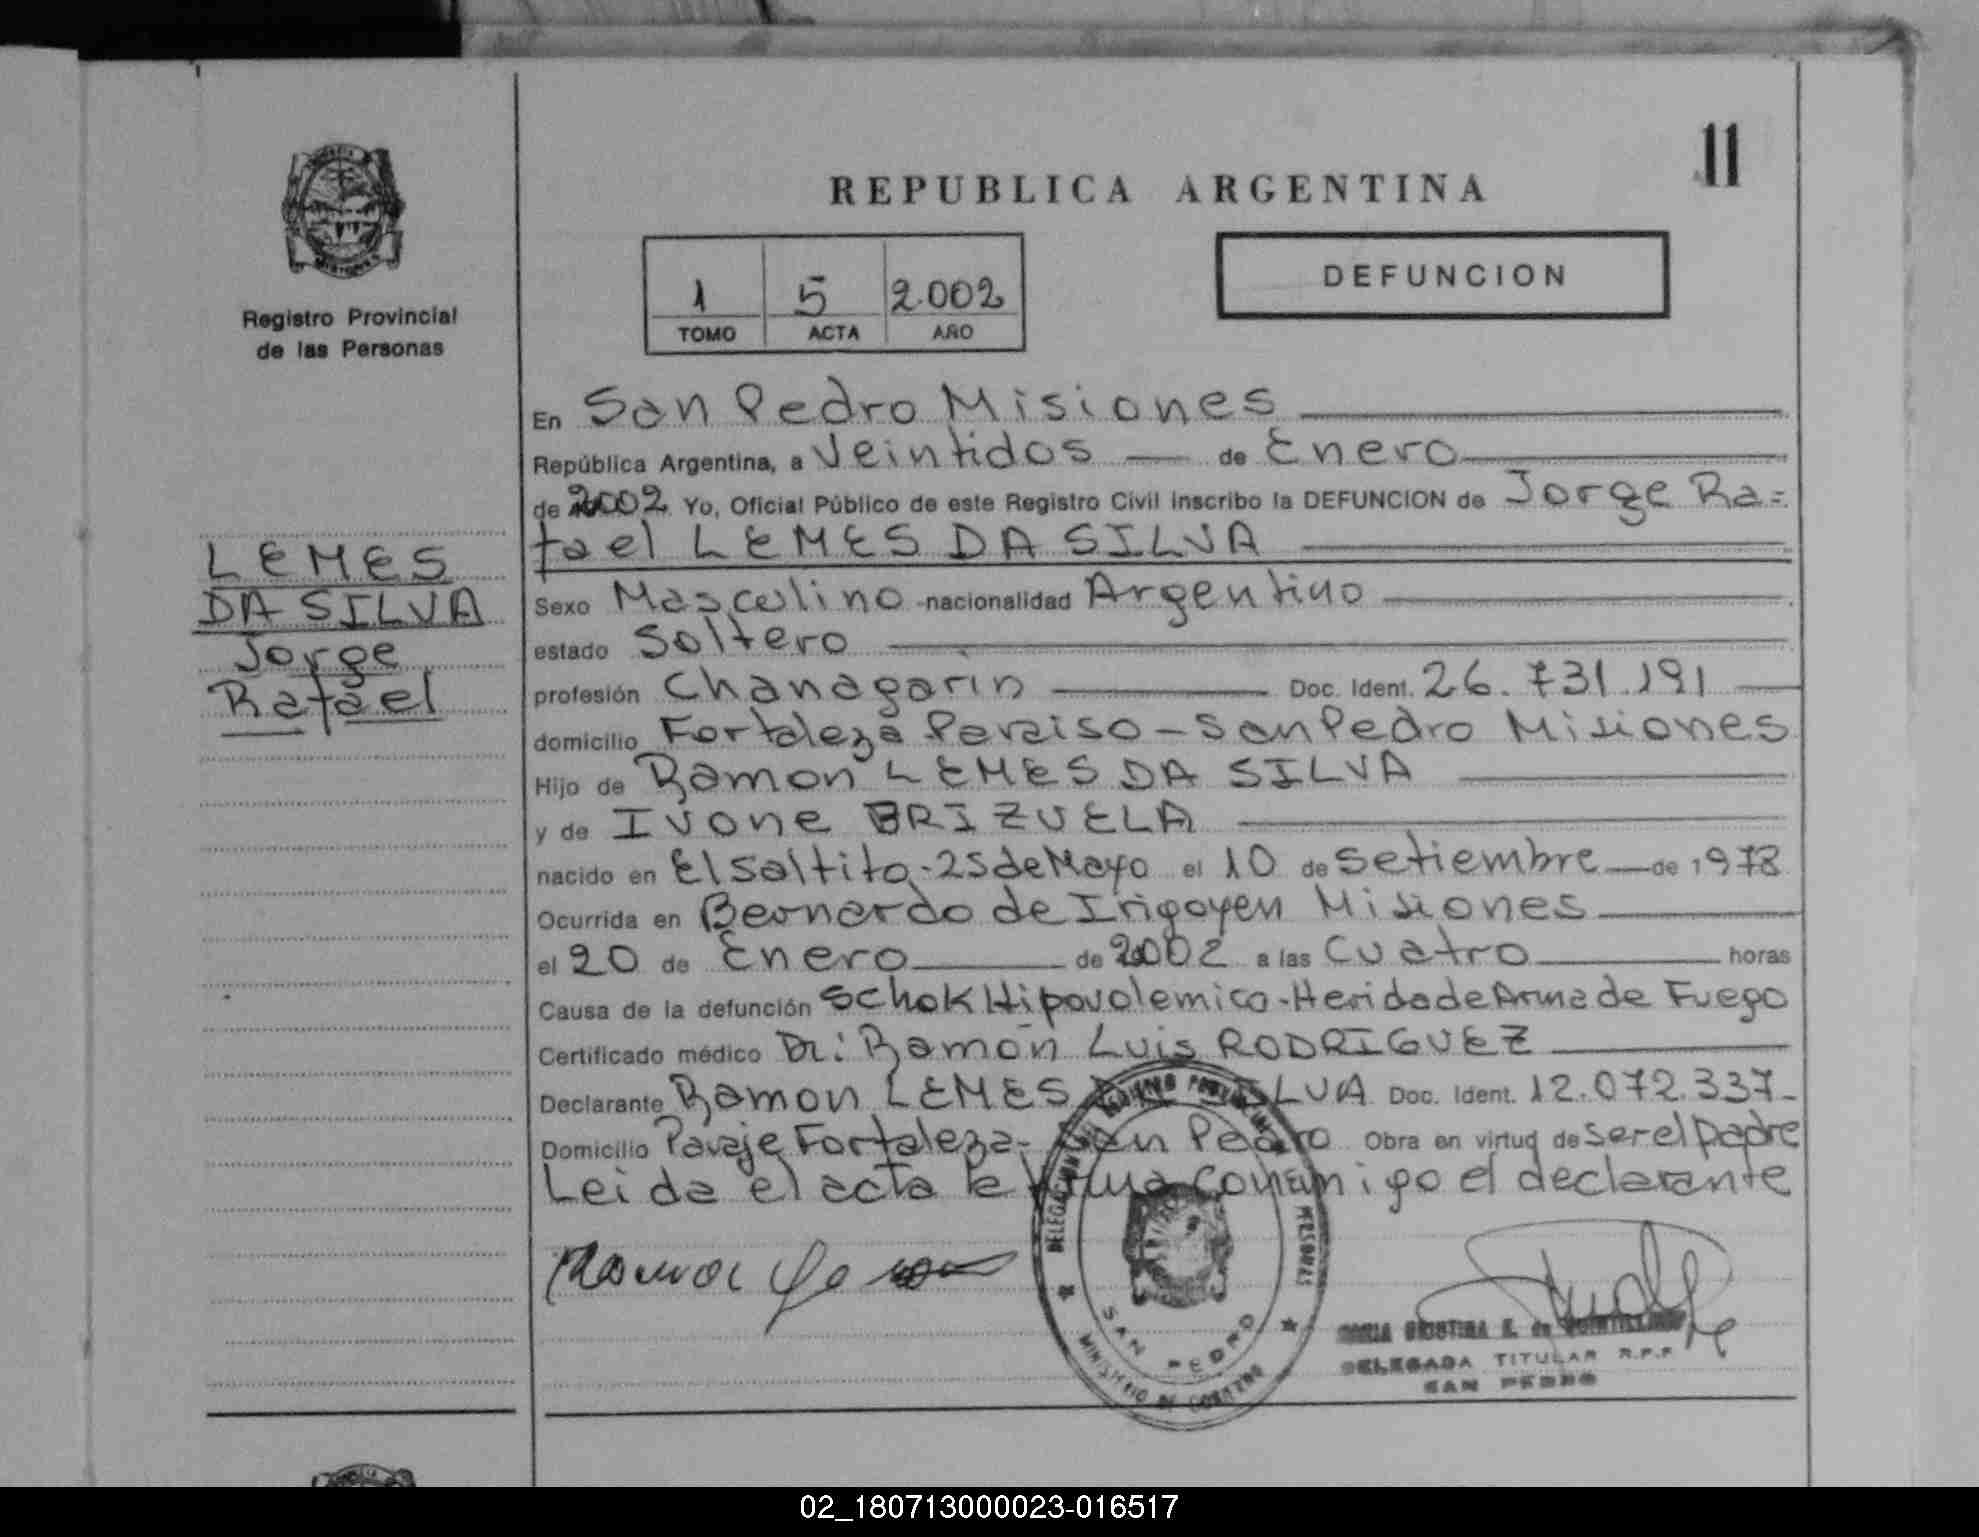 11
REPUBLICA ARGENTINA
1 5 2.002
TOMO ACTA AÑO
DEFUNCION
Registro Provincial
de las Personas
LEMES
DA SILVA
Jorge
Rafael
En San Pedro Misiones
República Argentina, a Veintidos de Enero
de 2002 Yo, Oficial Público de este Registro Civil inscribo la DEFUNCION de Jorge Ra=
fael LEMES DA SILVA
Sexo Masculino nacionalidad Argentino
estado Soltero
profesión Chanagarin Doc. Ident. 26.731.191
domicilio Fortaleza Paraiso - San Pedro Misiones
Hijo de Ramon LEMES DA SILVA
y de Ivone BRIZUELA
nacido en El Saltito - 25 de Mayo el 10 de Setiembre de 1978
Ocurrida en Bernardo de Irigoyen Misiones
el 20 de Enero de 2002 a las Cuatro horas
Causa de la defunción Schok Hipovolemico - Herida de Arma de Fuego
Certificado médico Dr: Ramón Luis RODRIGUEZ
Declarante Ramon LEMES DA SILVA Doc. Ident. 12.072.337-
Domicilio Paraje Fortaleza - San Pedro Obra en virtud de ser el padre
Leida el acta la firma conmigo el declarante
DELEGACION PERSONAS
SAN PEDRO
MINISTERIO DE GOBIERNO
MARIA CRISTINA E. de
DELEGADA TITULAR R.P.P.
SAN PEDRO
02_180713000023-016517